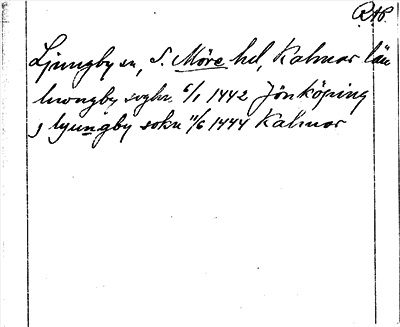 RAP.
Ljungby sn, S. Möre hd, Kalmar län
liwongby soghn 6/1 1442 Jönköping
j lyungby sokn 11/6 1444 Kalmar